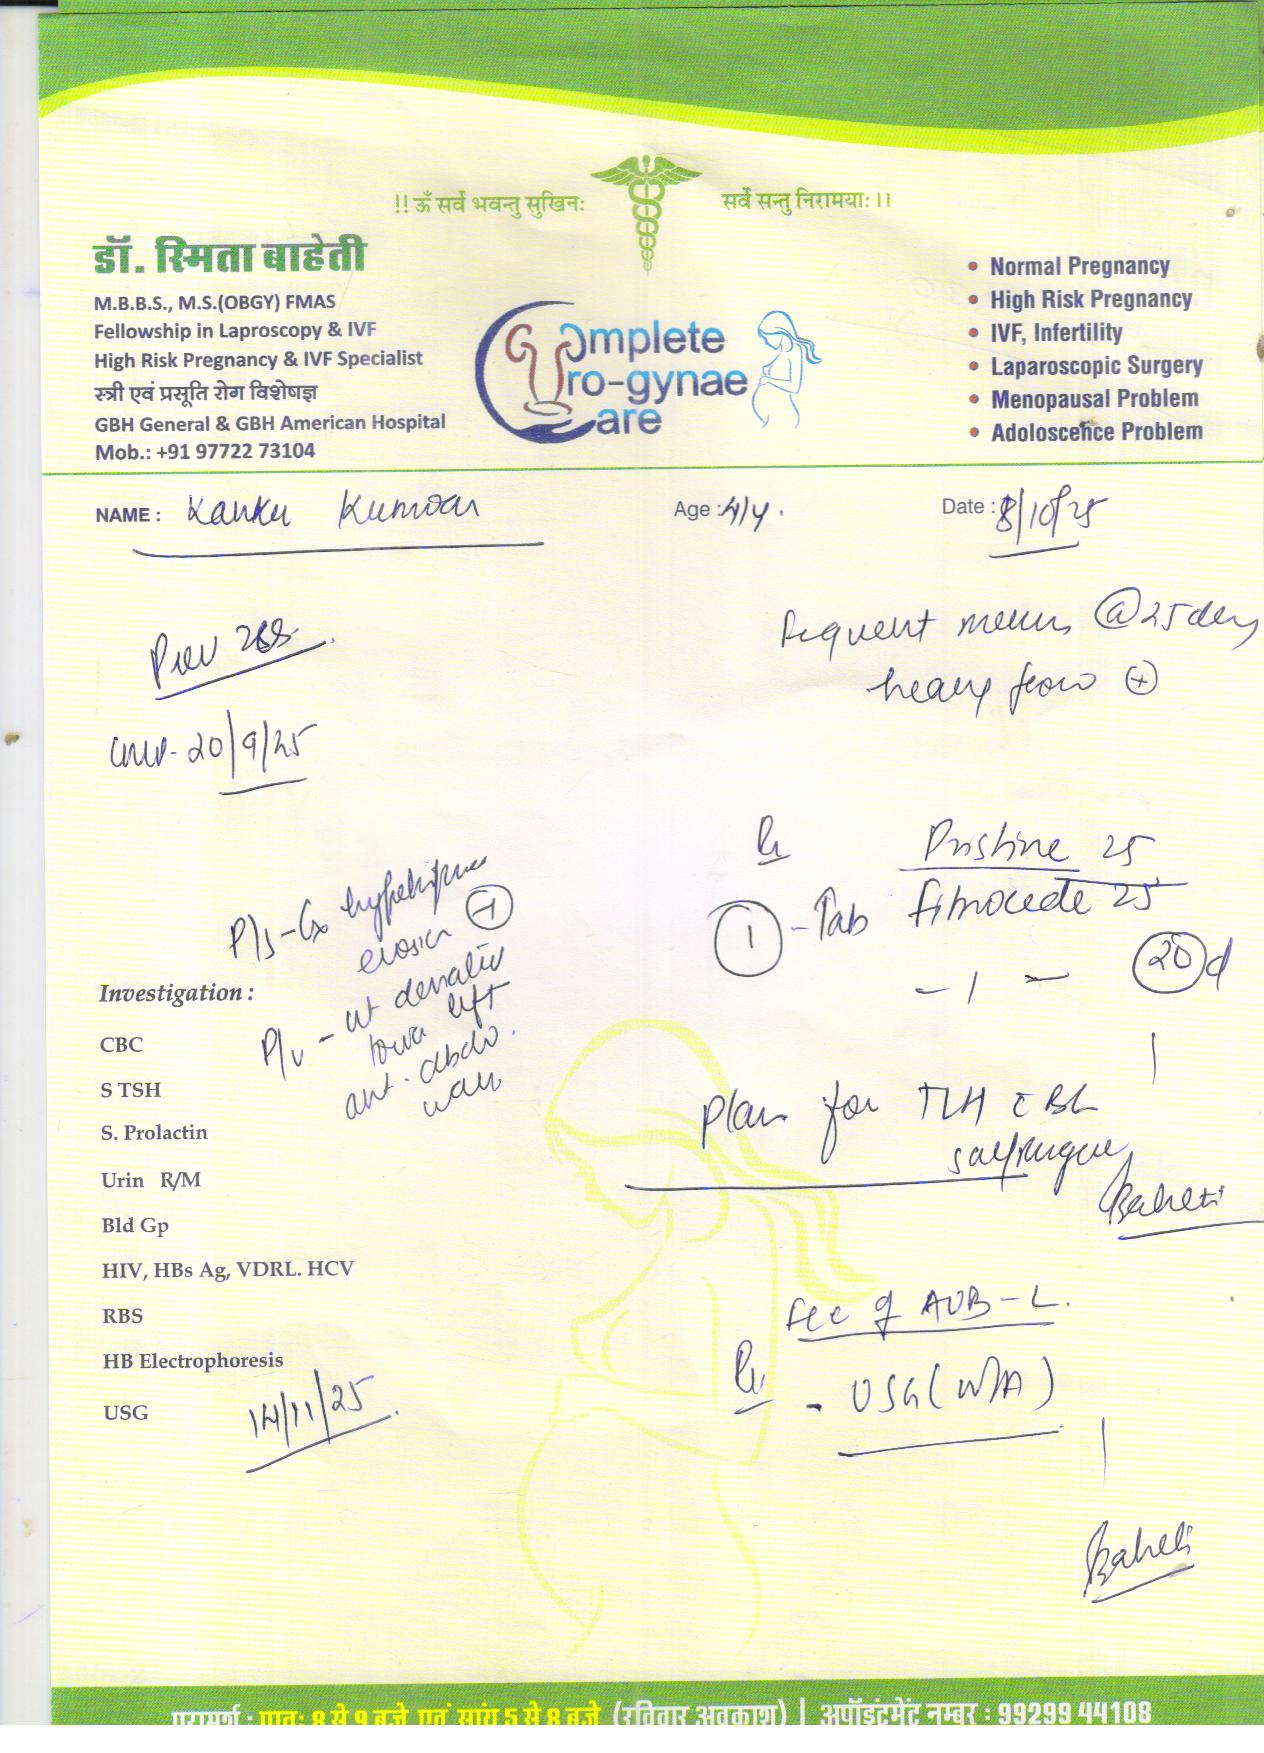 !! ॐ सर्वे भवन्तु सुखिनः सर्वे सन्तु निरामयाः ।।
डॉ. स्मिता बाहेती
M.B.B.S., M.S.(OBGY) FMAS
Fellowship in Laproscopy & IVF
High Risk Pregnancy & IVF Specialist
स्त्री एवं प्रसूति रोग विशेषज्ञ
GBH General & GBH American Hospital
Mob.: +91 97722 73104
Complete
Uro-gynae
Care
• Normal Pregnancy
• High Risk Pregnancy
• IVF, Infertility
• Laparoscopic Surgery
• Menopausal Problem
• Adoloscence Problem
NAME : Kanku Kumwar Age : 41y. Date : 8/10/25
Prev
LMP- 20/9/25
frequent menses @ 25 days
heavy flow +
P/s - Cx
erosion
P/v - ut deviated
towards left
ant. abdo.
wall
Rx
Pristine 25
1 - Tab 25
- 1 - 20 d
Plan for TLH c BL
salpingec
Baheti
Investigation :
CBC
S TSH
S. Prolactin
Urin R/M
Bld Gp
HIV, HBs Ag, VDRL. HCV
RBS
HB Electrophoresis
USG
14/11/25
of AUB-L.
Rx
- USG (W/A)
Baheti
परामर्श : प्रातः 8 से 9 बजे एवं सांय 5 से 8 बजे (रविवार अवकाश) | अपॉइंटमेंट नम्बर : 99299 44108